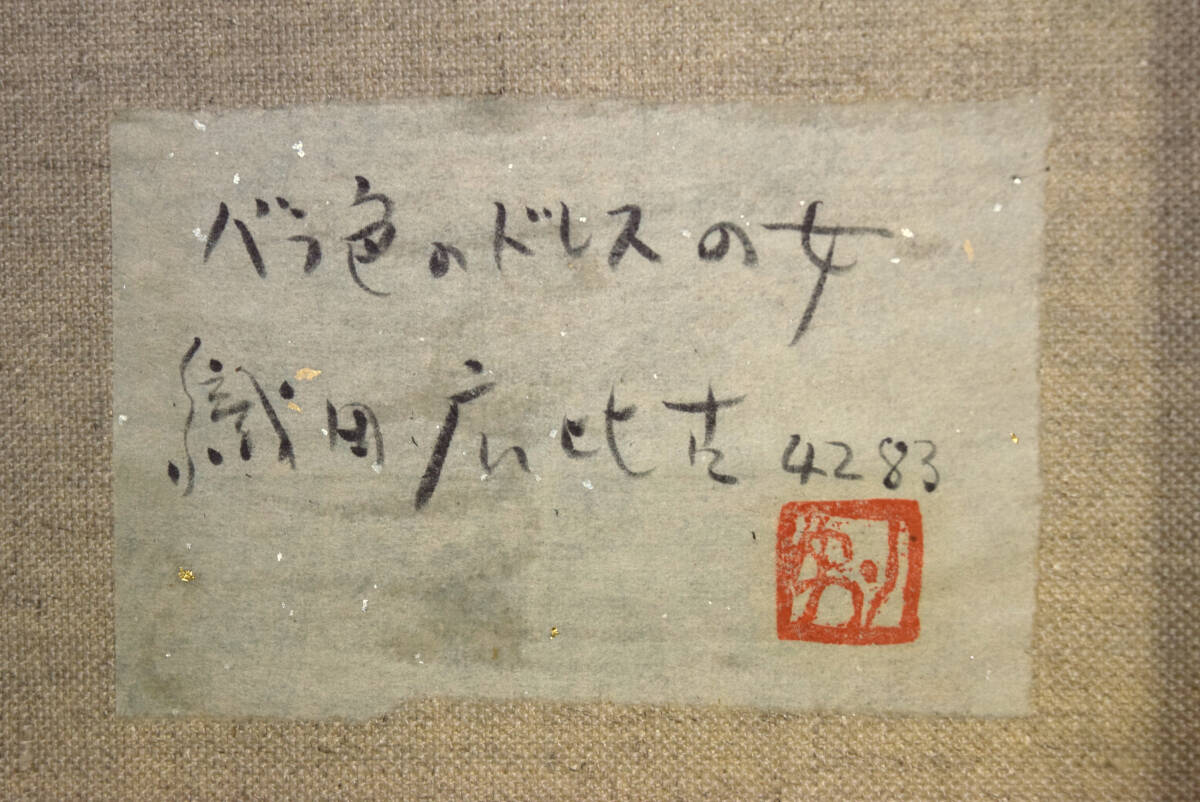 バラ色のドレスの女
織田広比古 4283